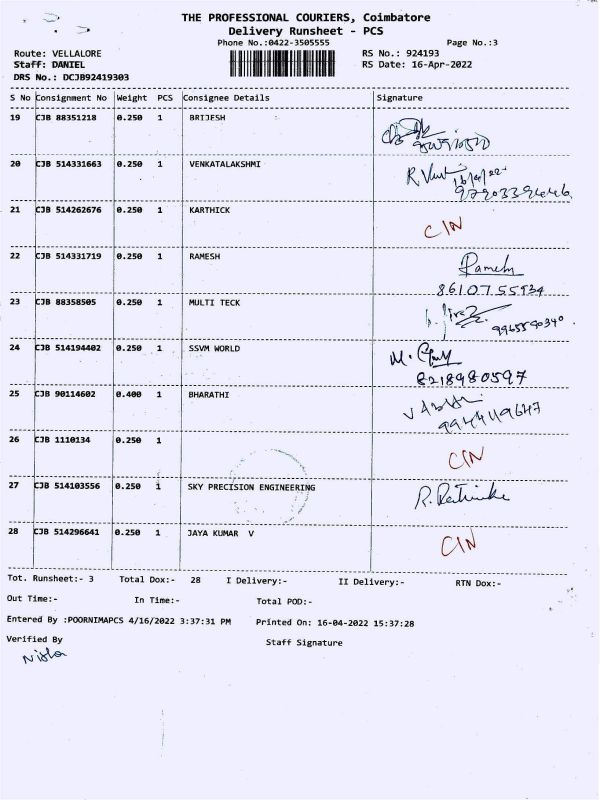 THE PROFESSIONAL COURIERS, Coimbatore
Delivery Runsheet - PCS
Phone No.:0422-3505555 Page No.:3
Route: VELLALORE RS No.: 924193
Staff: DANIEL RS Date: 16-Apr-2022
DRS No.: DCJB92419303
S No Consignment No Weight PCS Consignee Details Signature
19 CJB 88351218 0.250 1 BRIJESH
20 CJB 514331663 0.250 1 VENKATALAKSHMI
16/4/22
21 CJB 514262676 0.250 1 KARTHICK CIN
22 CJB 514331719 0.250 1 RAMESH Ramesh
8610755934
23 CJB 88358505 0.250 1 MULTI TECK
24 CJB 514194402 0.250 1 SSVM WORLD
8218980597
25 CJB 90114602 0.400 1 BHARATHI
26 CJB 1110134 0.250 1 CIN
27 CJB 514103556 0.250 1 SKY PRECISION ENGINEERING
28 CJB 514296641 0.250 1 JAYA KUMAR V CIN
Tot. Runsheet:- 3 Total Dox:- 28 I Delivery:- II Delivery:- RTN Dox:-
Out Time:- In Time:- Total POD:-
Entered By :POORNIMAPCS 4/16/2022 3:37:31 PM Printed On: 16-04-2022 15:37:28
Verified By Staff Signature
Nisha